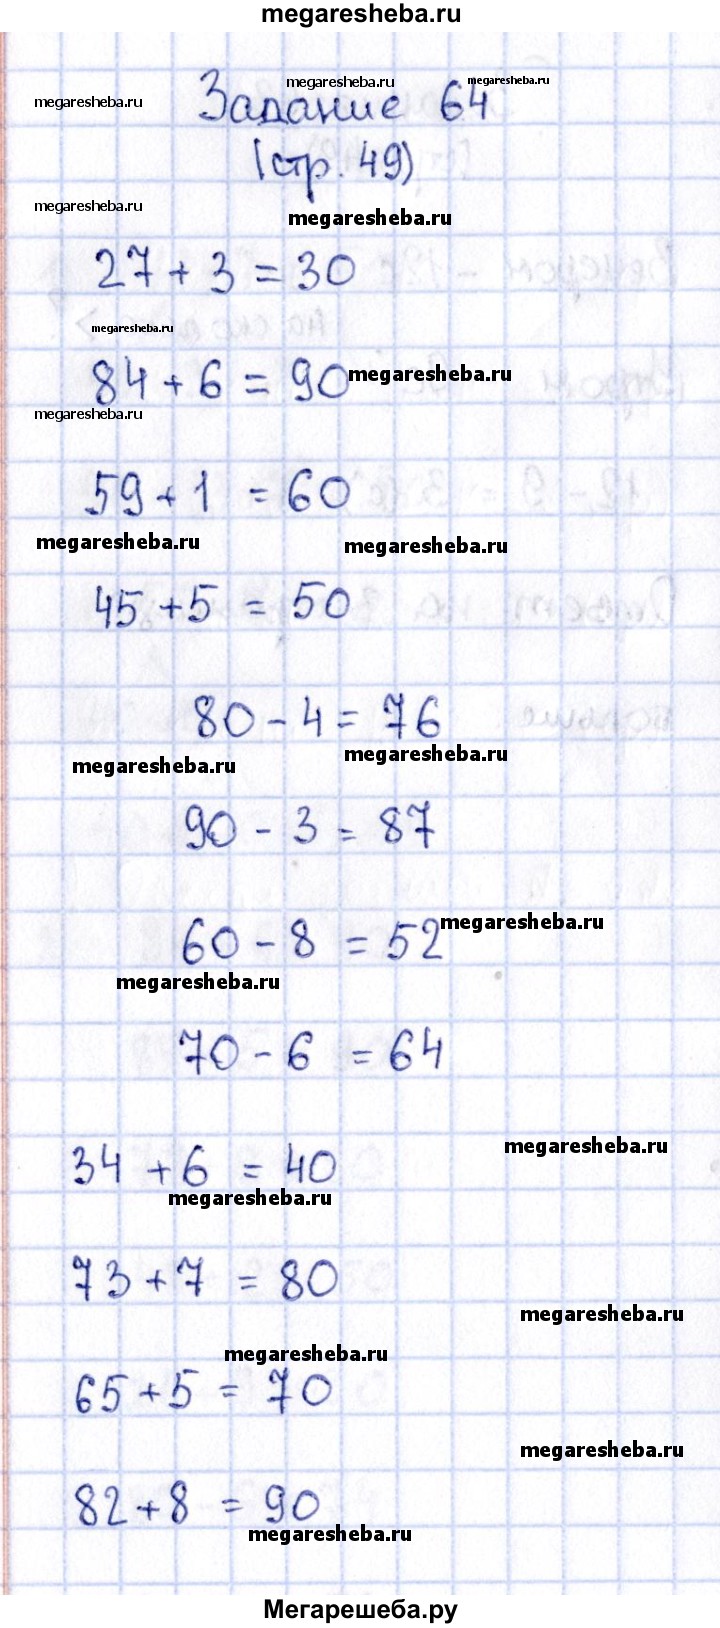 megaresheba.ru
megaresheba.ru megaresheba.ru
megaresheba.ru
Задание 64
(стр. 49)
megaresheba.ru
megaresheba.ru
27 + 3 = 30
megaresheba.ru
84 + 6 = 90 megaresheba.ru
megaresheba.ru
59 + 1 = 60
megaresheba.ru megaresheba.ru
45 + 5 = 50
80 - 4 = 76
megaresheba.ru megaresheba.ru
90 - 3 = 87
60 - 8 = 52 megaresheba.ru
megaresheba.ru
70 - 6 = 64
megaresheba.ru
34 + 6 = 40
megaresheba.ru
73 + 7 = 80
megaresheba.ru
megaresheba.ru
65 + 5 = 70
megaresheba.ru
82 + 8 = 90
megaresheba.ru
Мегарешеба.ру